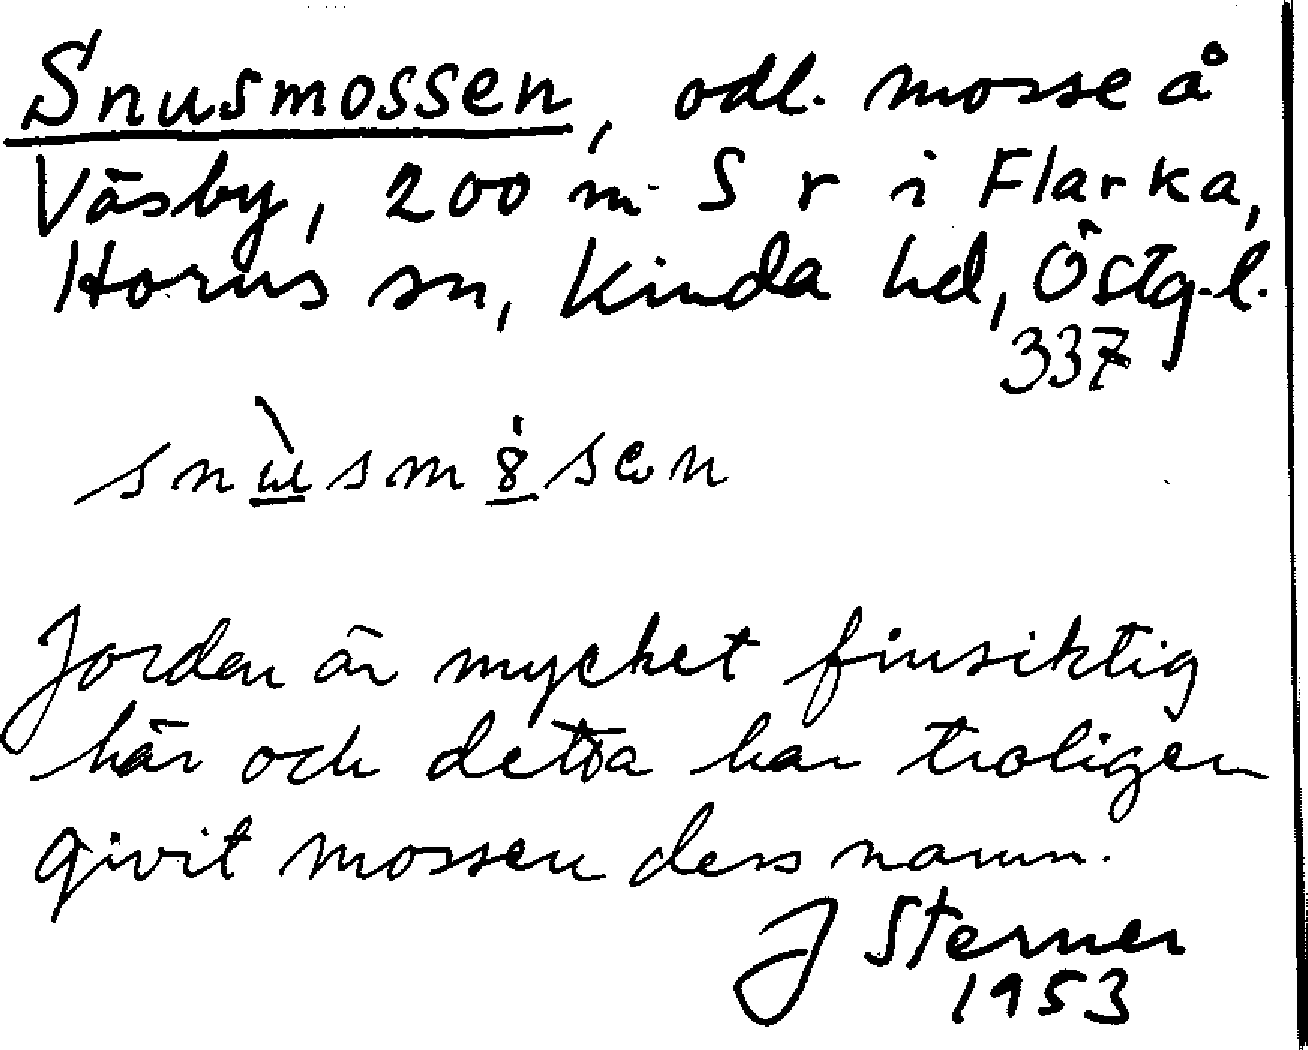 Snusmossen, odl. mosse å
Väsby, 200 m S r i Flarka,
Horns sn, Kinda hd, Östg.l.
337
snùsmȣ̇sen
Jorden är mycket finsiktig
här och detta har troligen
givit mossen dess namn.
J Sterner
1953